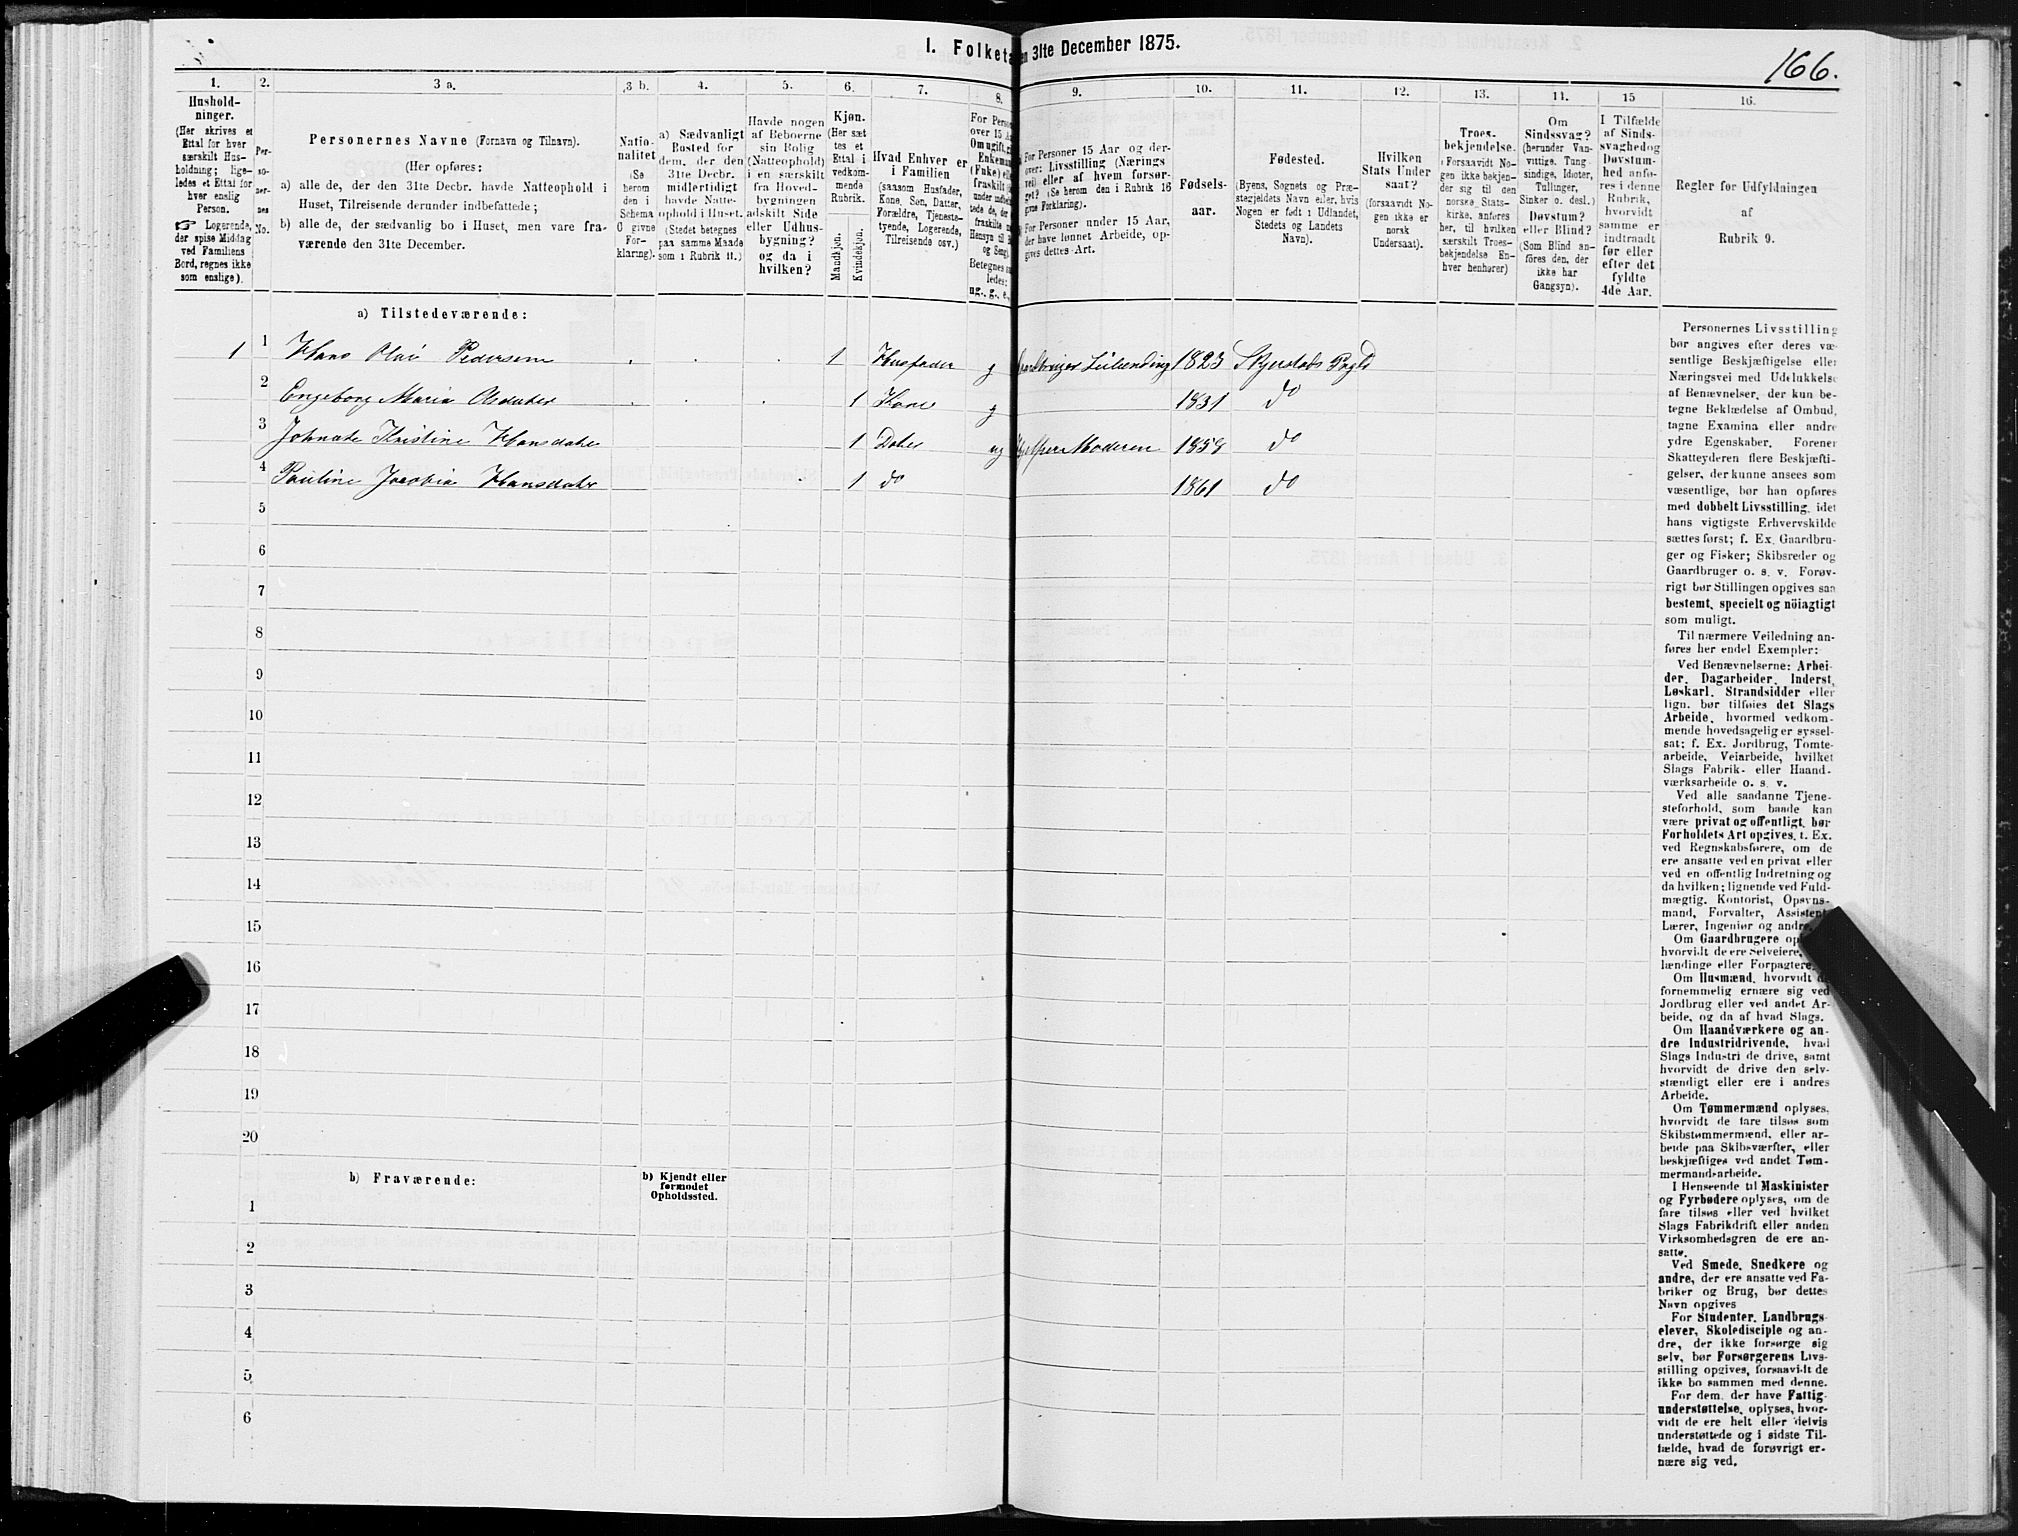 I. Folketæ
en 31te December 1875.
166.
1.
2.
3 a.
3 b.
4.
5.
6.
7.
8.
9.
10.
11.
12.
13.
14.
15
16.
Hushold-
ninger.
(Her skrives et
Ettal for hver
særskilt Hus-
holdning; lige-
ledes et Ettal for
hver enslig
Person.
☞ Logerende,
der spise Middag
ved Familiens
Bord, regnes ikke
som enslige).
Per-
so-
ner-
nes
No.
Personernes Navne (Fornavn og Tilnavn).
(Her opføres:
a) alle de, der den 31te Decbr. havde Natteophold i
Huset, Tilreisende derunder indbefattede;
b) alle de, der sædvanlig bo i Huset, men vare fra-
værende den 31te December.
Natio-
nalitet
(Se
herom
den i
Schema
O givne
For-
klaring).
a) Sædvanligt
Bosted for
dem, der den
31te Decbr.
midlertidigt
havde Natte-
ophold i Huset.
(Stedet betegnes
paa samme Maade
som i Rubrik 11.)
Havde nogen
af Beboerne
sin Bolig
(Natteophold)
i en særskilt
fra Hoved-
bygningen
adskilt Side
eller Udhus-
bygning?
og da i
hvilken?
Kjøn.
(Her sæt
tes et
Ettal i
vedkom-
mende
Rubrik.
Mandkjøn.
Kvindekjøn.
Hvad Enhver er
i Familien
(saasom Husfader,
Kone, Søn, Datter,
Forældre, Tjeneste-
tyende, Logerende,
Tilreisende osv.)
For Perso
over 15 A
Om ugift, g
Enkeman
(Fuke) elle
fraskilt
under indbefat
tede de, der
fraskilte
Hensyn til
og Seng).
Betegnes sa
ledes:
ug., g., e.,
For Personer 15 Aar og der-
over: Livsstilling (Nærings
vei) eller af hvem forsør-
get? (Se herom den i Rubrik 16
givne Forklaring).
For Personer under 15 Aar,
der have lønnet Arbeide, op-
gives dettes Art.
Fødsels-
aar.
Fødested.
(Byens, Sognets og Præ-
stegjeldets Navn eller, hvis
Nogen er født i Udlandet,
Stedets og Landets
Navn).
Hvilken
Stats Under
saat?
(forsaavidt No-
gen ikke er
norsk
Undersaat).
Troes-
bekjendelse.
(Forsaavidt No-
gen ikke bekjen-
der sig til den
norske Stats-
kirke, anføres
her, til hvilken
særskilt Troes-
bekjendelse En-
hver henhører)
Om
Sindssvag?
(herunder Van-
vittige, Tung-
sindige, Idioter,
Tullinger,
Sinker o. desl.)
Døvstum?
eller Blind?
(Som Blind an-
føres den, der
ikke har
Gangsyn).
I Tilfælde
af Sinds-
svaghedog
Døvstum-
hed anfø-
res i denne
Rubrik,
hvorvidt
samme er
indtraadt
før eller
efter det
fyldte
4de Aar.
Regler før Udfyldningen
af
Rubrik 9.
a) Tilstedeværende:
1 1 Hans Olai Pedersen 1 Husfader g Leilending 1823 Pgld
2 Engeborg Maria Olsdater 1 Kone g 1831 do
3 Kristine Hansdater 1 Dater ug Moderen 1858 do
4 Pauline Jacobia Hansdater 1 do 1861 do
5
6
7
8
9
10
11
12
13
14
15
16
17
18
19
20
b) Fraværende:
b) Kjendt eller
formodet
Opholdssted.
1
2
3
4
5
6
Personernes Livsstilling
bør angives efter deres væ-
sentlige Beskjæftigelse eller
Næringsvei med Udelukkelse
af Benævnelser, der kun be-
tegne Beklædelse af Ombud,
tagne Examina eller andre
ydre Egenskaber. Forener
Skatteyderen flere Beskjæfti-
gelser, der kunne ansees som
væsentlige, bør han opføres
med dobbelt Livsstilling, idet
hans vigtigste Erhvervskilde
sættes først; f. Ex. Gaardbru-
ger og Fisker; Skibsreder og
Gaardbruger o. s. v. Forøv-
rigt bør Stillingen opgives saa
bestemt, specielt og nöiagtigt
som muligt.
Til nærmere Veiledning an-
føres her endel Exempler:
Ved Benævnelserne: Arbei-
der, Dagarbeider, Inderst,
Løskarl, Strandsidder eller
lign. bør tilføies det Slags
Arbeide, hvormed vedkom-
mende hovedsagelig er syssel-
sat; f. Ex. Jordbrug, Tomte-
arbeide, Veiarbeide, hvilket
Slags Fabrik- eller Haand-
værksarbeide o. s. v.
Ved alle saadanne Tjene-
steforhold, som baade kan
være privat og offentligt, bør
Forholdets Art opgives, t. Ex.
ved Regnskabsførere, om de
ere ansatte ved en privat eller
ved en offentlig Indretning og
da hvilken; lignende ved Fuld-
mægtig, Kontorist, Opsyns-
mand, Forvalter, Assistent,
Lærer, Ingeniør og andre.
Om Gaardbrugere op
hvorvidt de ere Selveiere,
lændinge eller Forpagtere.
Om Husmænd, hvorvidt de
fornemmelig ernære sig ved
Jordbrug eller ved andet Ar-
beide, og da af hvad Slags.
Om Haandværkere og an-
dre Industridrivende, hvad
Slags Industri de drive, samt
hvorvidt de drive den selv-
stændigt eller ere i andres
Arbeide.
Om Tømmermænd oplyses,
hvorvidt de fare tilsøs som
Skibstømmermænd, eller ar-
beide paa Skibsværfter, eller
beskjæftiges ved andet Tøm-
mermandsarbeide.
I Henseende til Maskinister
og Fyrbødere oplyses, om de
fare tilsøs eller ved hvilket
Slags Fabrikdrift eller anden
Virksomhedsgren de ere an-
satte.
Ved Smede, Snedkere og
andre, der ere ansatte ved Fa-
briker og Brug, bør dettes
Navn opgives
For Studenter, Landbrugs-
elever, Skoledisciple og an-
dre, der ikke forsørge sig
selv, bør Forsørgerens Livs-
stilling opgives, forsaavidt de
ikke bo sammen med denne.
For dem, der have Fattig-
understøttelse, oplyses, hvor-
vidt de ere helt eller delvis
understøttede og i sidste Til-
fælde, hvad de forøvrigt er-
nære sig ved.